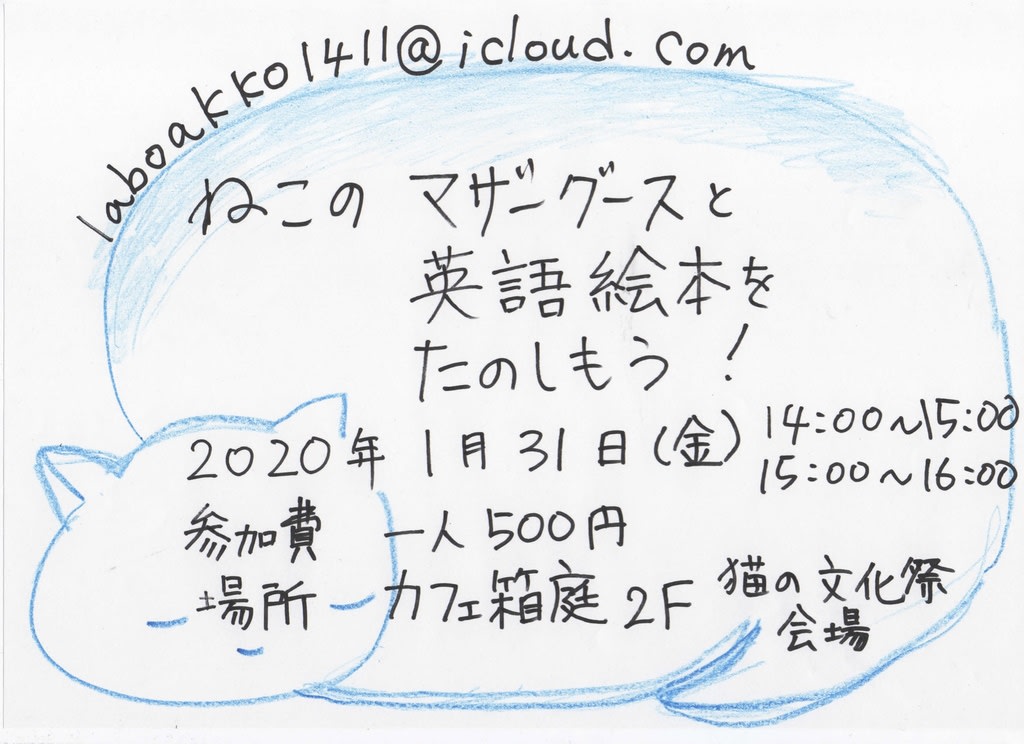 laboakko1411@icloud.com
ねこの マザーグースと
英語絵本を
たのしもう!
2020年 1月31日(金) 14:00~15:00
15:00~16:00
参加費 一人500円
場所 カフェ箱庭 2F 猫の文化祭
会場